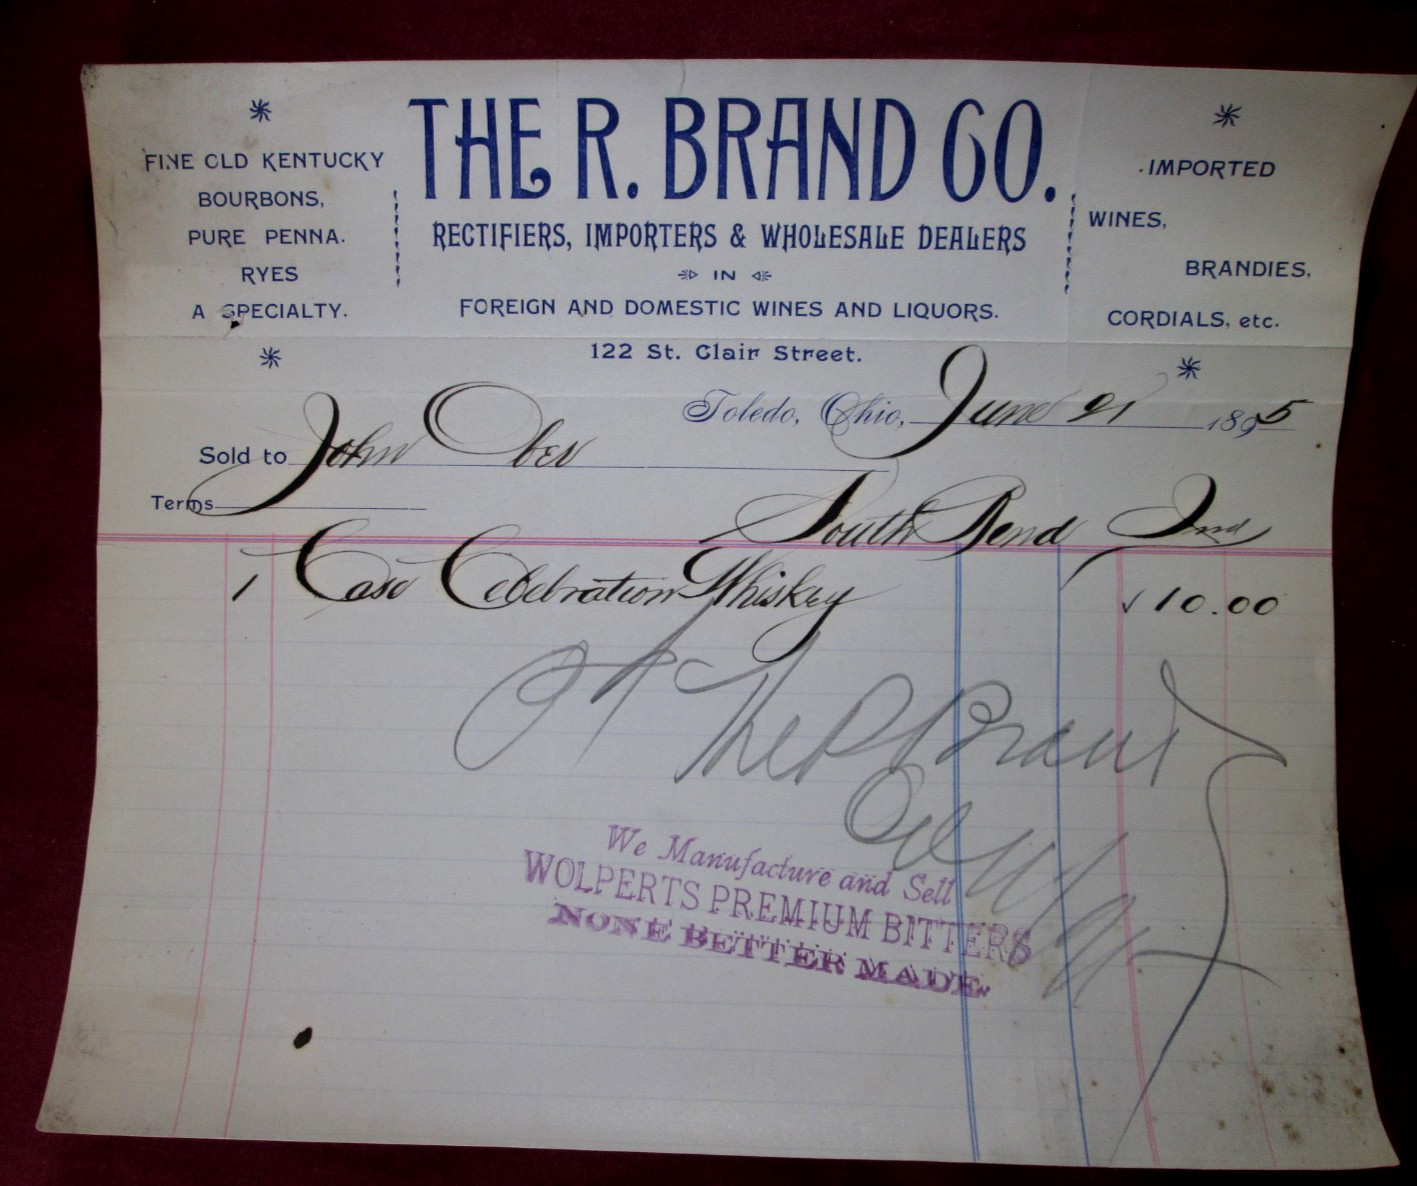 THE R. BRAND CO.
RECTIFIERS, IMPORTERS & WHOLESALE DEALERS
IN
FOREIGN AND DOMESTIC WINES AND LIQUORS.
122 St. Clair Street.
FINE OLD KENTUCKY
BOURBONS,
PURE PENNA.
RYES
A SPECIALTY.
IMPORTED
WINES,
BRANDIES,
CORDIALS, etc.
Toledo, Ohio, June 21 1895
Sold to John Ober
Terms
South Bend Ind
1 Case Celebration Whiskey √ 10.00
The R Brand
Co
We Manufacture and Sell
WOLPERTS PREMIUM BITTERS
NONE BETTER MADE.